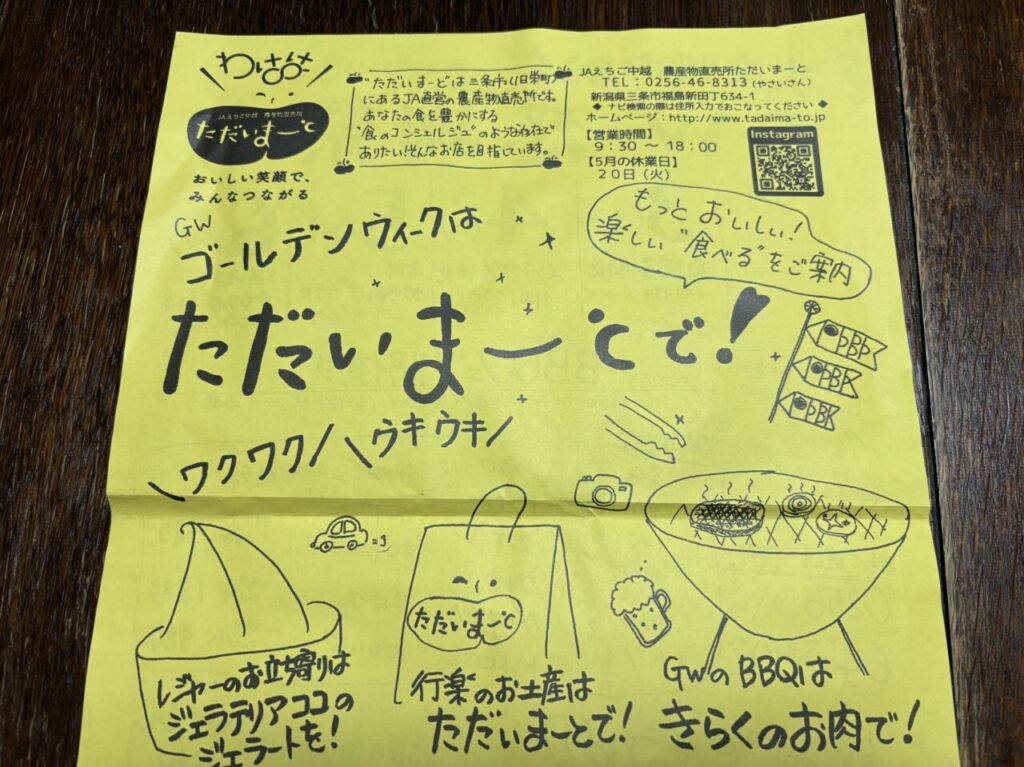 わははは
JAえちご中越 農産物直売所
ただいまーと
おいしい笑顔で、
みんなつながる
"ただいまーと"は三条市(旧栄町)
にあるJA直営の農産物直売所です。
あなたの食を豊かにする
"食のコンシェルジュ"のような存在で
ありたい!そんなお店を目指しています。
JAえちご中越 農産物直売所ただいまーと
TEL:0256-46-8313(やさいさん)
新潟県三条市福島新田丁634-1
◆ ナビ検索の際は住所入力でおこなってください ◆
ホームページ:http://www.tadaima-to.jp
【営業時間】
9:30 ～ 18:00
【5月の休業日】
20日(火)
Instagram
もっとおいしい!
楽しい"食べる"をご案内
GW
ゴールデンウィークは
ただいまーとで!
ワクワク
ウキウキ
BBB
BBK
BBK
レジャーのお立ち寄りは
ジェラテリアココの
ジェラートを!
ただいまーと
行楽のお土産は
ただいまーとで!
GWのBBQは
きらくのお肉で!